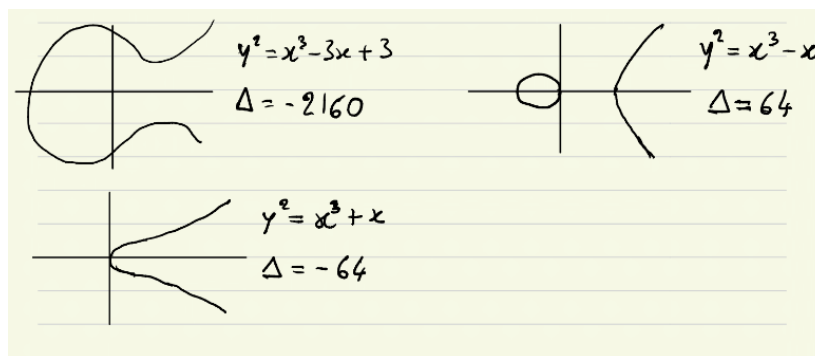 y² = x³ - 3x + 3
Δ = -2160
y² = x³ - x
Δ = 64
y² = x³ + x
Δ = -64